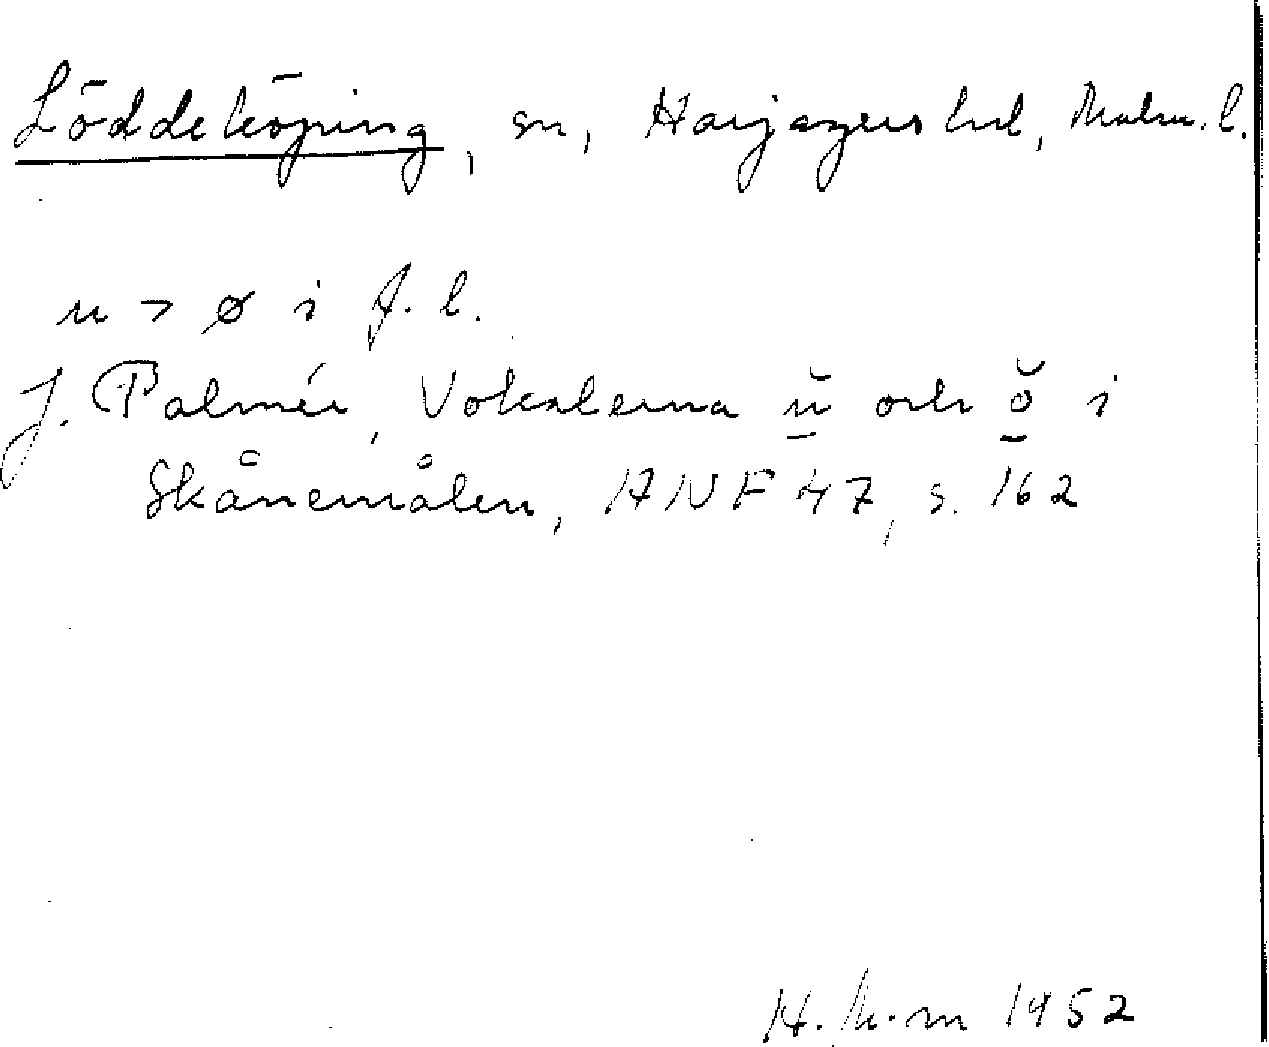 Löddeköping, sn, Harjagers hd, Malm. l.
u > ø i f. l.
J. Palmér, Vokalerna ŭ och ŏ i
Skånemålen, ANF 47, s. 162
1952